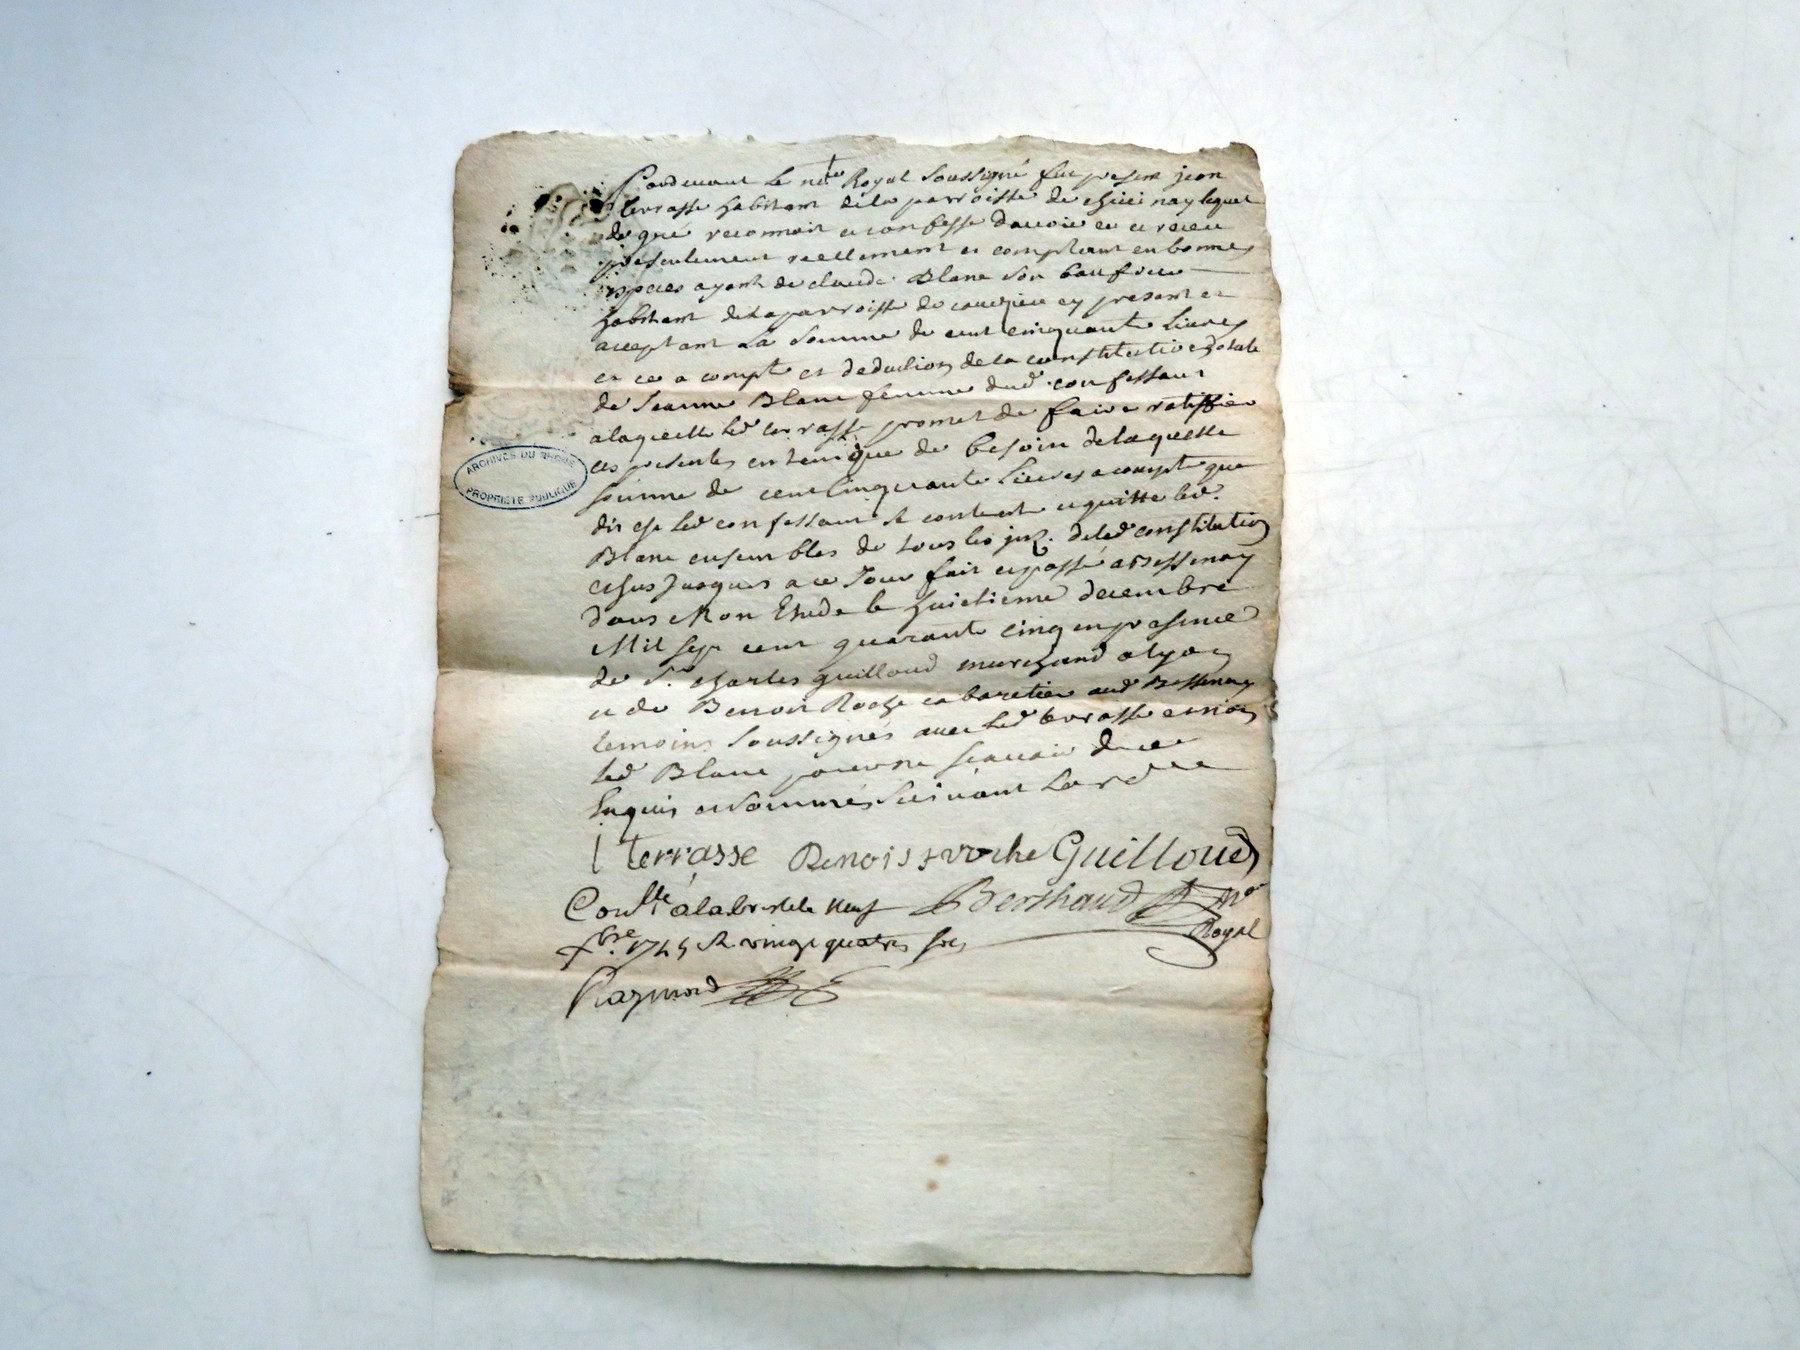 Pardevant le nre Royal soussigné fut present jean
terrasse habitant de la parroisse de chivinay lequel
de gré reconnoit et confesse d'avoir eu et receu
presentement reellement et comptant en bonnes
especes ayant de claude Blanc son beaufrere
habitant de la parroisse de courzieu cy present et
acceptant la somme de cent cinquante livres
et ce a compte et deduction de la constitution dotale
de Jeanne Blanc femme dud confessant
a laquelle led terrasse promet de faire ratiffier
ces presentes en temps que de besoin de laquelle
somme de cent cinquante livres a compte que
dit est led confessant se contente et quitte led.
Blanc ensembles de tous les de lad constitution
jusques a ce Jour fait et passé a Bessenay
dans Mon Etude le huictieme decembre
Mil sept cent quarante cinq en presence
de Sr. charles guilloud marchand a lyon
et de Benoit Roche cabaretier aud Bessenay
temoins soussignés avec led terrasse et non
led Blanc pour ne scavoir de ce
Enquis et sommés suivant lord
terrasse Benoist roche Guilloud
Conllé a labresle le neuf Berthaud Nre
Royal
xbre. 1745 R vingt quatre sols
Raymond
ARCHIVES DU RHÔNE
PROPRIÉTÉ PUBLIQUE